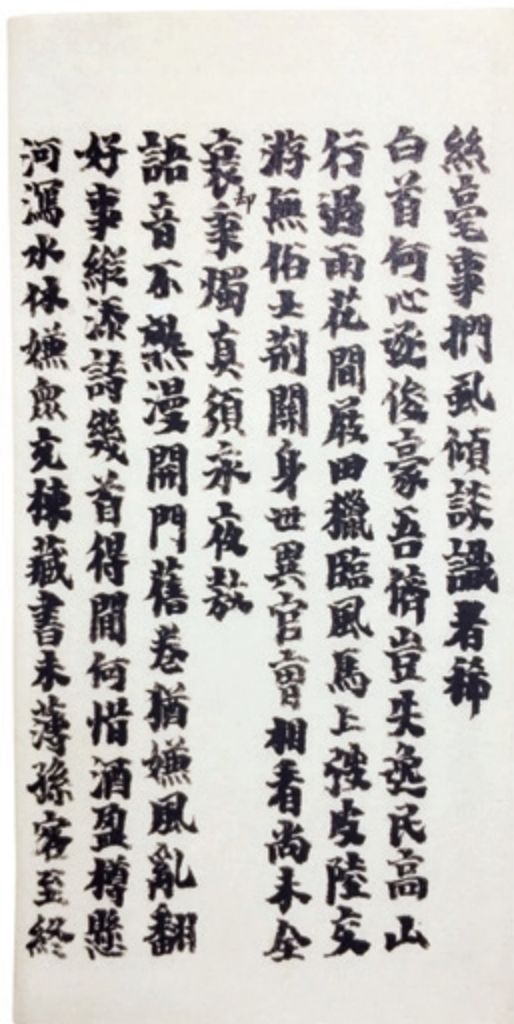 絲毫事捫虱傾談識者稀
白首何心逐俊豪吾儕豈失逸民高山
行過雨花間屐田獵臨風馬上弢皮陸交
游無俗士荊關身世異官曹相看尚未全
衰却秉燭真須永夜敖
語音不熟漫開門舊卷猶嫌風亂翻
好事縱添詩幾首得閒何惜酒盈樽懸
河瀉水休嫌眾充棟藏書未薄孫客至終